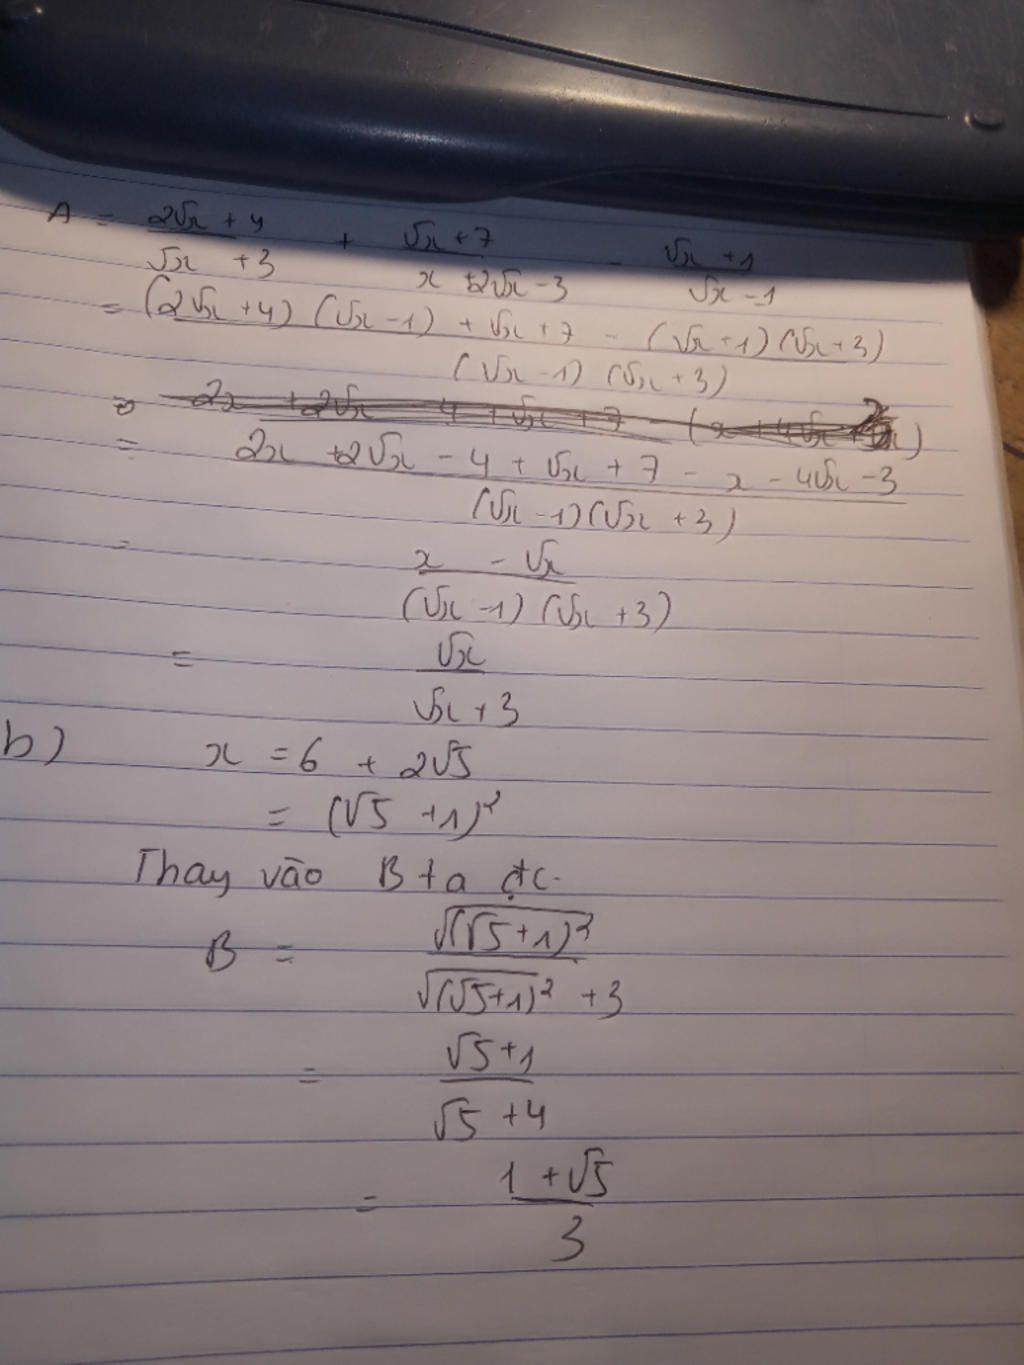 A = (2√x + 4)/(√x + 3) + (√x + 7)/(x + 2√x - 3) - (√x + 1)/(√x - 1)
= ((2√x + 4)(√x - 1) + √x + 7 - (√x + 1)(√x + 3))/((√x - 1)(√x + 3))
= (2x + 2√x - 4 + √x + 7 - x - 4√x - 3)/((√x - 1)(√x + 3))
= (x - √x)/((√x - 1)(√x + 3))
= √x/(√x + 3)
b) x = 6 + 2√5
= (√5 + 1)²
Thay vào B ta đc.
B = √((√5 + 1)²)/(√((√5 + 1)²) + 3)
= (√5 + 1)/(√5 + 4)
= (1 + √5)/3